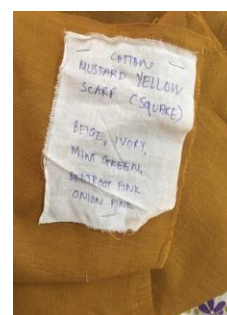 COTTON
MUSTARD YELLOW
SCARF (SQUARE)
BEIGE, IVORY,
MINT GREEN,
BEETROOT PINK
ONION PINK